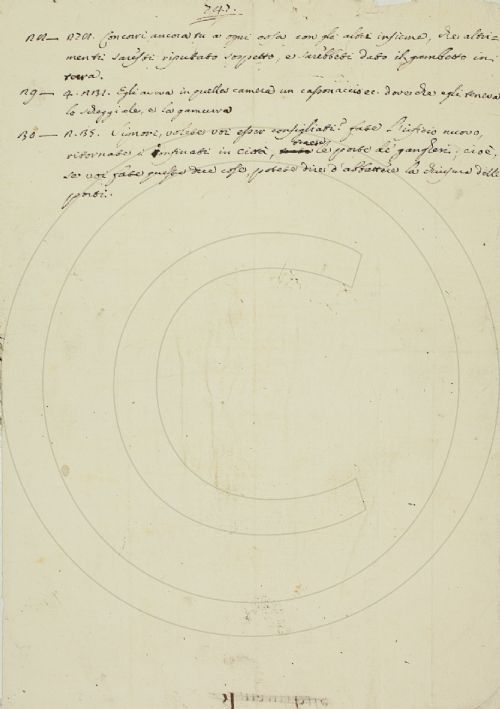 747.
Concori ancora tu a ogni cosa con gli altri insieme, che altri-
menti saresti riputato sospetto, e sarebbeti dato il gambetto in
terra.
29 — 4. Egli aveva in quella camera un cassonaccio ec. dove che egli teneva
lo scheggiale, e la gamurra
30 — Signori, volete voi esser consigliati? fate l'ufizio nuovo,
ritornate i confinati in città, traete le porte de' gangheri; cioè,
se voi fate queste dece cose, potete dire d'abbattere la chiusura delle
porti.